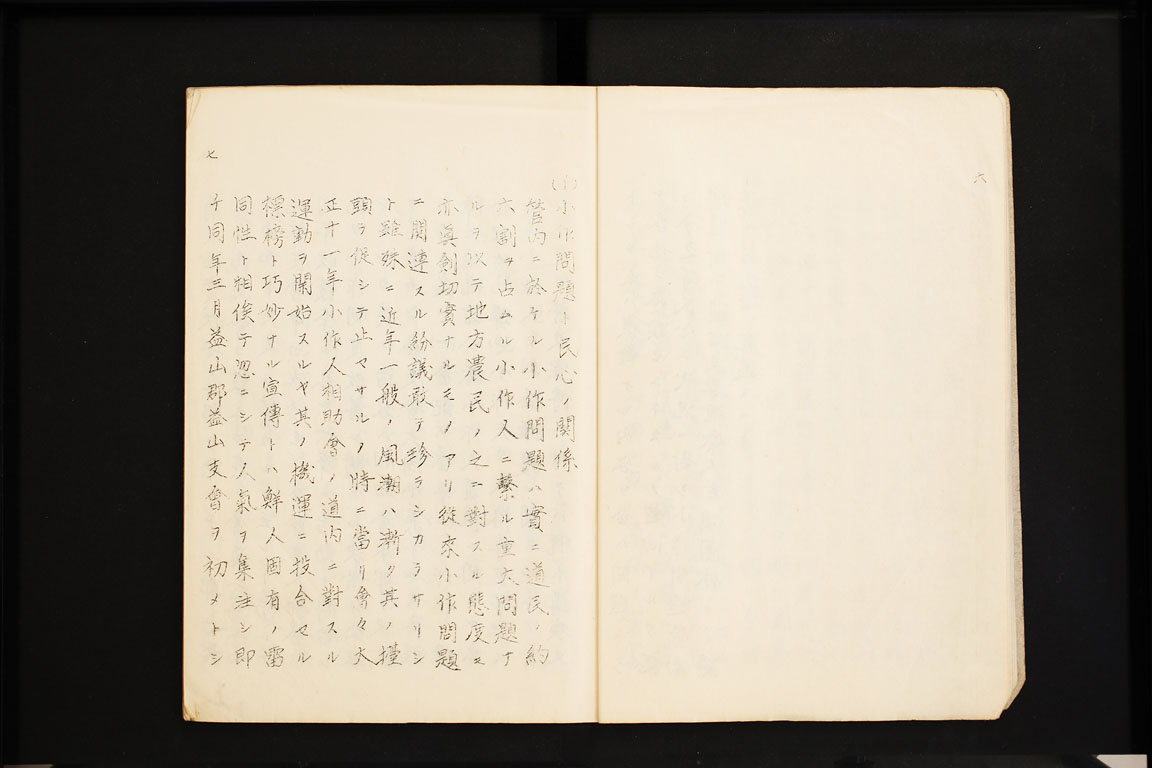 六
小作問題ト民心ノ關係
管內ニ於ケル小作問題ハ實ニ道民ノ約
六割ヲ占ムル小作人ニ繫ル重大問題ナ
ルヲ以テ地方農民ノ之ニ對スル態度モ
亦眞劍切實ナルモノアリ從來小作問題
ニ關連スル紛議敢テ珍ラシカラサリシ
ト雖殊ニ近年一般ノ風潮ハ漸ク其ノ擡
頭ヲ促シテ止マサルノ時ニ當リ會々大
正十一年小作人相助會ノ道內ニ對スル
運動ヲ開始スルヤ其ノ機運ニ投合セル
標榜ト巧妙ナル宣傳トハ鮮人固有ノ雷
同性ト相俟テ忽ニシテ人氣ヲ集注シ即
チ同年三月益山郡益山支會ヲ初メトシ
七